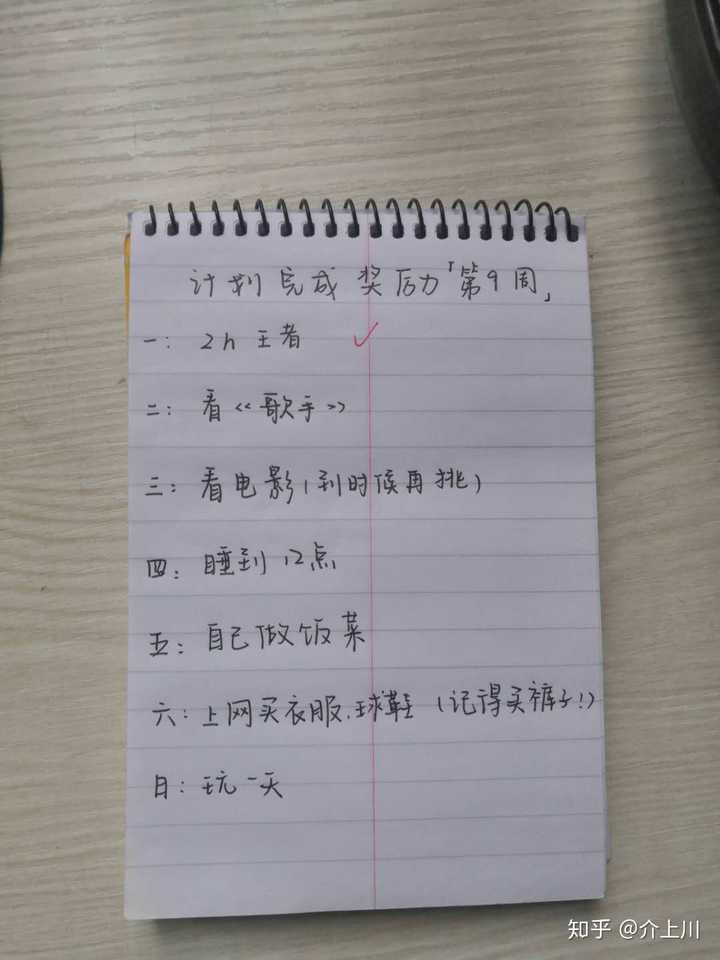 计划完成奖励「第9周」
一: 2h 王者 ✓
二: 看《歌手》
三: 看电影(到时候再挑)
四: 睡到12点
五: 自己做饭菜
六: 上网买衣服、球鞋 (记得买裤子!)
日: 玩一天
知乎 @介上川